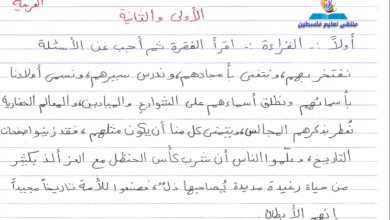 العربية
ملتقى تعليم فلسطين
الأولى والثانية
أولاً :. القراءة :. اقرأ الفقرة ثم أجب عن الأسئلة
نفتخر بهم، ونتغنى بأمجادهم، وندرس سيرهم، ونسمي أولادنا
بأسمائهم ونطلق أسماءهم على الشوارع والميادين، والمعالم الحضارية
نُعطر بذكرهم المجالس، ويتمنى كل منا أن يكون مثلهم، فقد زينوا صفحات
التاريخ، وعلّموا الناس أن شرب كأس الحنظل مع العز ألذ بكثير
من حياة رغيدة مديدة يُصاحبها ذلّ، فصنعوا للأمة تاريخاً مجيداً
إنهم الأبطال